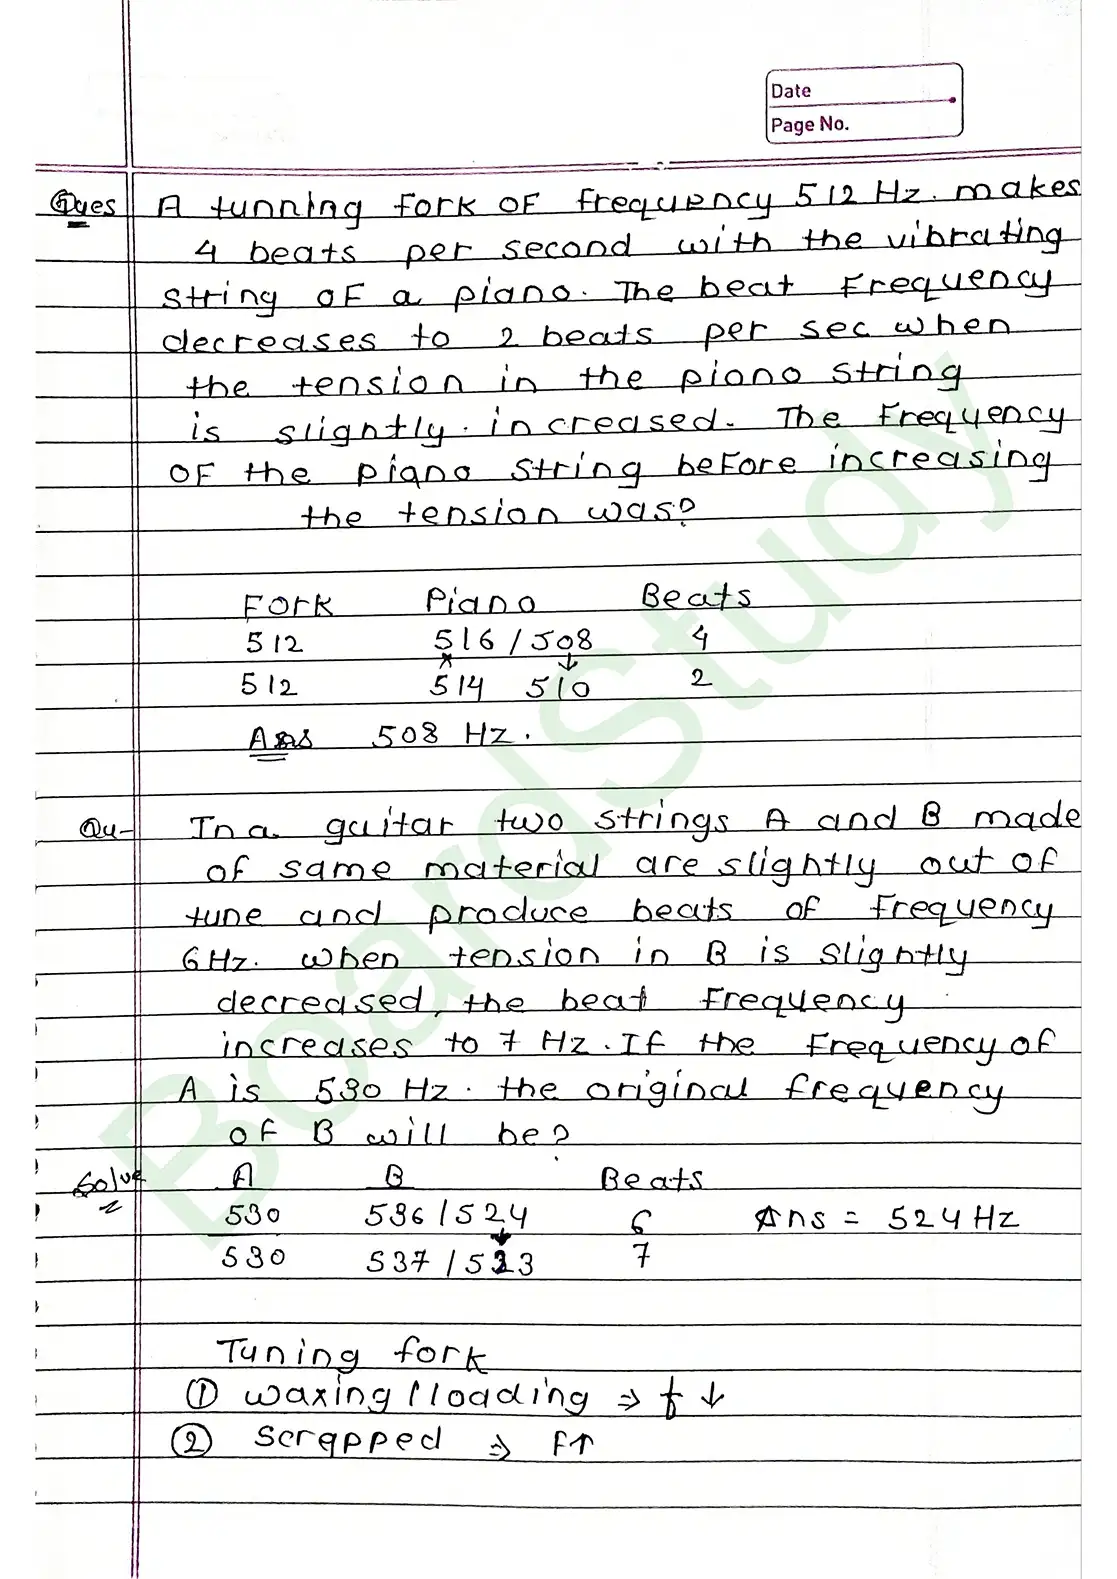 Date
Page No.
Ques A tunning fork of frequency 512 Hz. makes
4 beats per second with the vibrating
string of a piano. The beat Frequency
decreases to 2 beats per sec when
the tension in the piono string
is slightly. increased. The Frequency
of the piano string before increasing
the tension was?
Fork Piano Beats
512 516 / 508 4
512 514 510 2
Ans 508 Hz.
Qu- In a guitar two strings A and B made
of same material are slightly out of
tune and produce beats of frequency
6Hz. when tension in B is slightly
decreased, the beat Frequency
increases to 7 Hz. If the Frequency of
A is 530 Hz. the original frequency
of B will be?
Solve A B Beats
530 536 / 524 6 Ans = 524 Hz
530 537 / 523 7
Tuning fork
① waxing / loading ⇒ f ↓
② Scrapped ⇒ F↑
BoardStudy